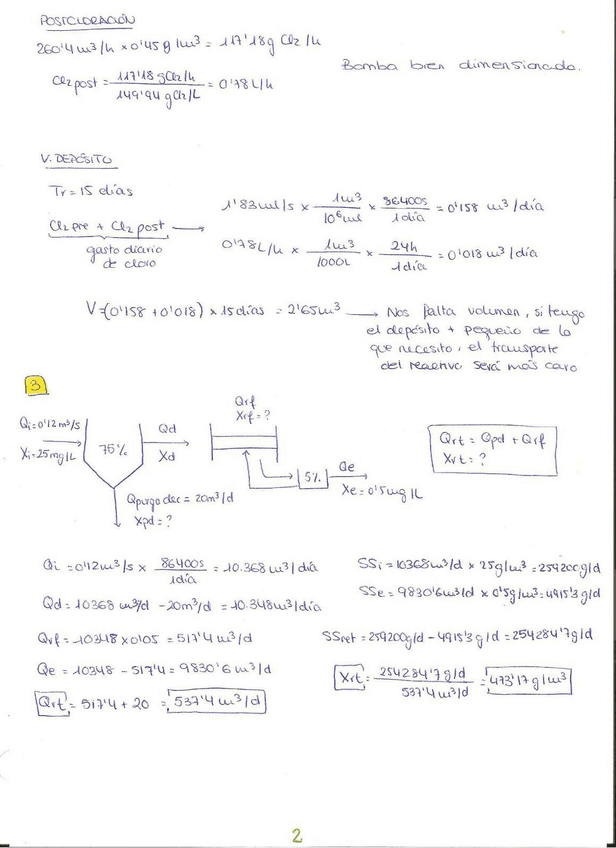 POSTCLORACIÓN
260'4 m³/h x 0'45 g/m³ = 117'18 g Cl2/h
Cl2 post = 117'18 gCl2/h / 149'94 gCl2/L = 0'78 L/h
Bomba bien dimensionada.
V. DEPÓSITO
Tr = 15 días
Cl2 pre + Cl2 post →
gasto diario
de cloro
1'83 ml/s x 1m³/10⁶ ml x 86400s/1día = 0'158 m³/día
0'78 L/h x 1m³/1000L x 24h/1día = 0'018 m³/día
V = (0'158 + 0'018) x 15 días = 2'65 m³ → Nos falta volumen, si tengo
el depósito + pequeño de lo
que necesito, el transporte
del reactivo será más caro
3
Qi = 0'12 m³/s
Xi = 25 mg/L
75%
Qd
Xd
Qrf
Xrf = ?
5%
Qe
Xe = 0'5 mg/L
Qpurga dec = 20 m³/d
Xpd = ?
Qrt = Qpd + Qrf
Xrt = ?
Qi = 0'12 m³/s x 86400s/1día = 10.368 m³/día
Qd = 10368 m³/d - 20 m³/d = 10.348 m³/día
Qrf = 10348 x 0'05 = 517'4 m³/d
Qe = 10348 - 517'4 = 9830'6 m³/d
Qrt = 517'4 + 20 = 537'4 m³/d
SSi = 10368 m³/d x 25 g/m³ = 259200 g/d
SSe = 9830'6 m³/d x 0'5 g/m³ = 4915'3 g/d
SSret = 259200 g/d - 4915'3 g/d = 254284'7 g/d
Xrt = 254284'7 g/d / 537'4 m³/d = 473'17 g/m³
2